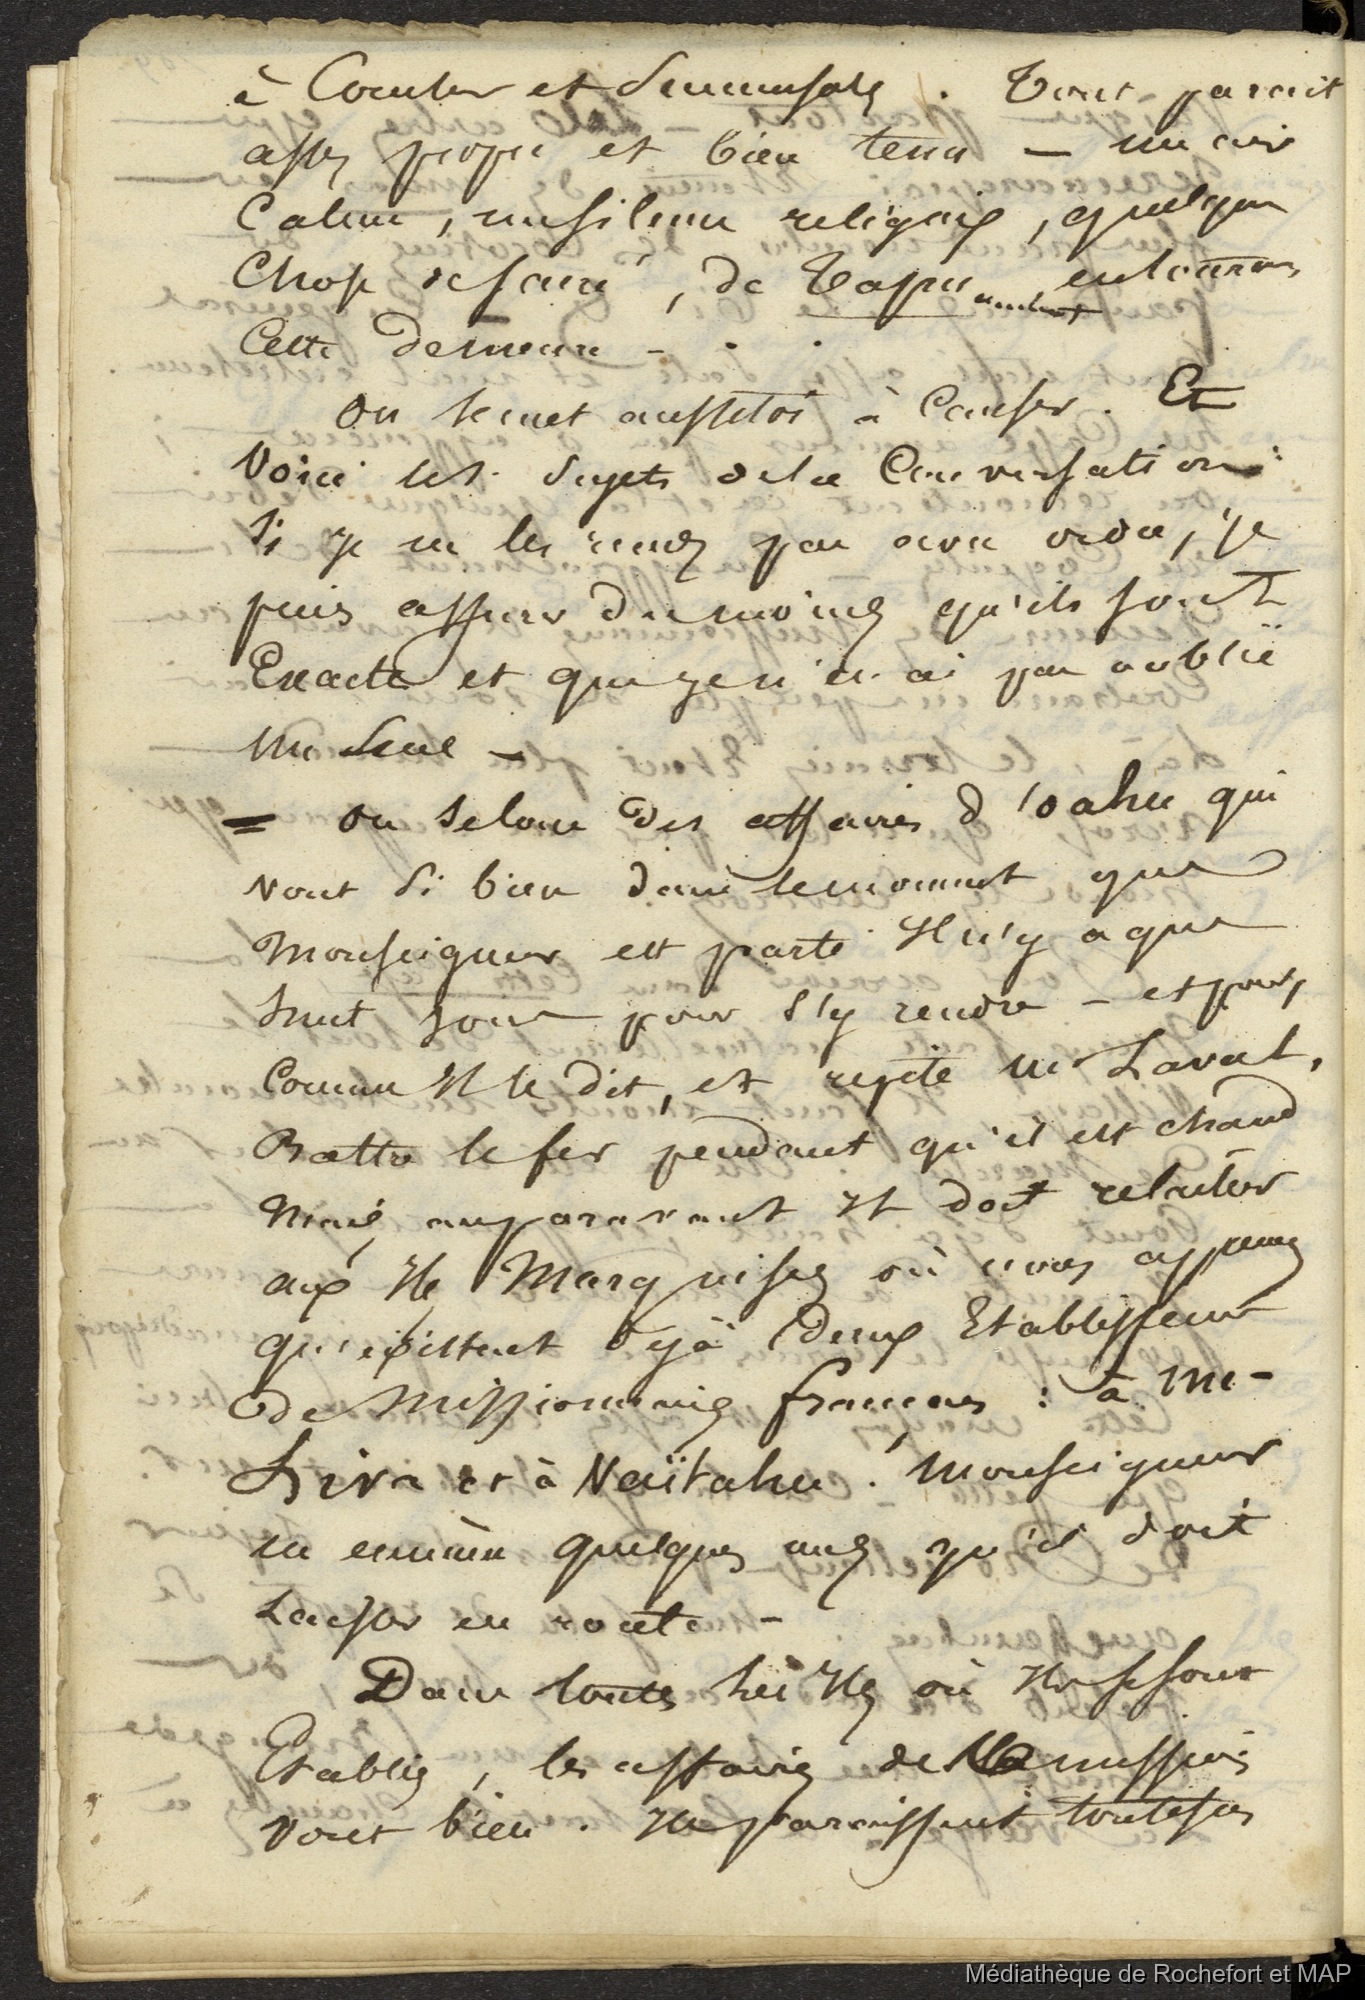 à Coucher et d'immensités. Tout paroit
assez propre et bien tenu — un air
Calme, un silence religieux, quelque
Chose de sacré, de Tapu entourent
Cette demeure - . .
On se met aussitot à Causer. Et
Voici les sujets de la Conversation:
Si je ne les rends pas avec ordre, je
puis assurer du moins qu'ils sont
Exacts et que je n'en ai pas oublié
un seul —
= On se loue des affaires d'Oahu qui
vont si bien dans le moment que
Monseigneur est parti Il n'y a que
huit jours pour s'y rendre - et pour,
Comme Il le dit, et repete Mr Laval,
Battre le fer pendant qu'il est chaud
Mais auparavant Il doit relacher
aux Iles Marquises où nous apprenons
qu'existent déjà deux Etablissemts
de Missionnaires français: à
et à Vaïtahu. Monseigneur
en emmène quelques uns qu'il doit
Laisser en route. -
Dans toutes les Iles où Ils se sont
Etablis, les affaires de la mission
vont bien. Ils paroissent toutefois